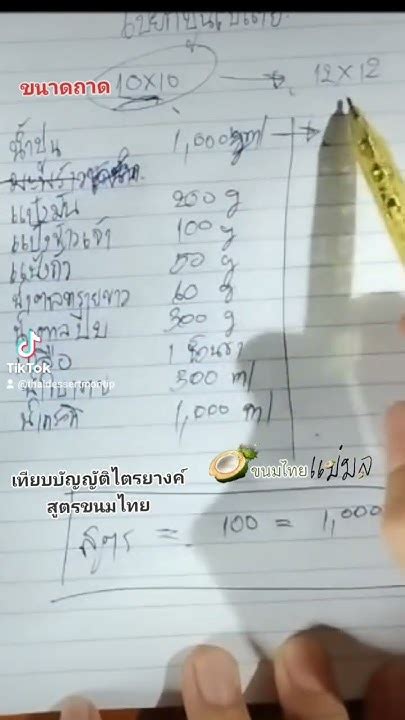 ขนาดถาด 10x10 → 12x12
น้ำปูน 1,000 ml →
แป้งมัน 200 g
แป้งข้าวเจ้า 100 g
แป้งถั่ว 50 g
น้ำตาลทรายขาว 60 g
น้ำตาลปี๊บ 300 g
เกลือ 1 ช้อนชา
300 ml
น้ำกะทิ 1,000 ml
TikTok
@thaidessertmontip
ขนมไทยแม่มล
เทียบบัญญัติไตรยางค์
สูตรขนมไทย
สูตร = 100 = 1,000